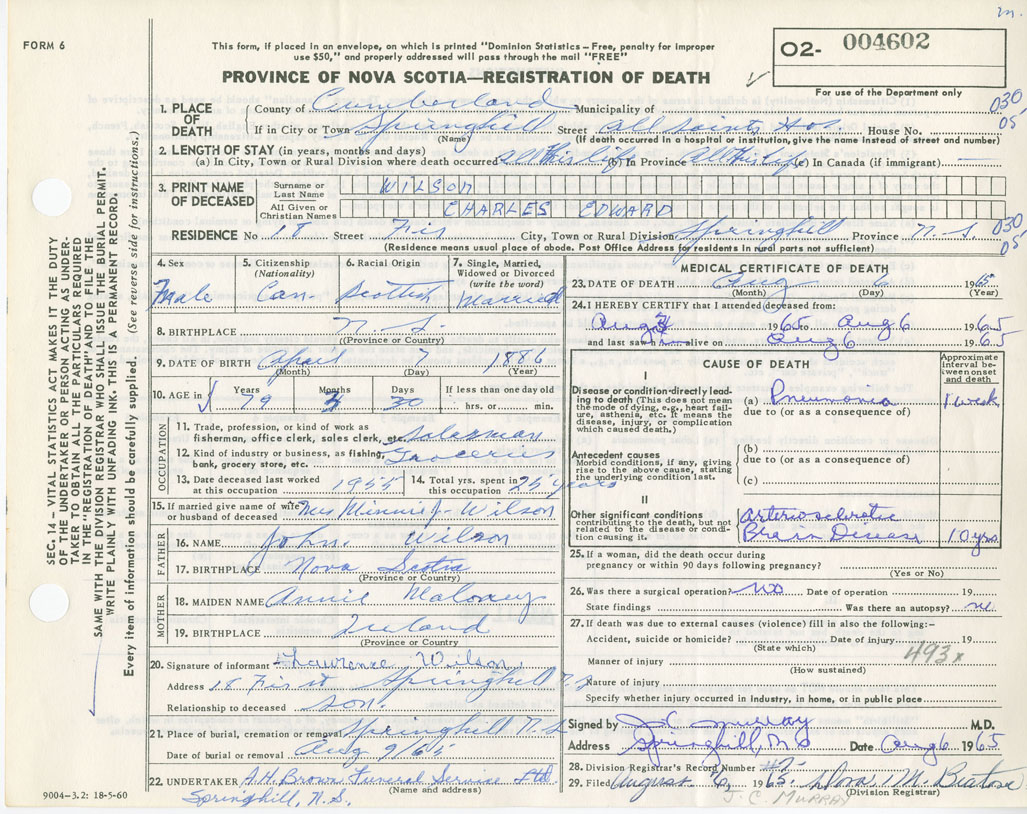 m.
FORM 6
This form, if placed in an envelope, on which is printed "Dominion Statistics – Free, penalty for improper
use $50," and properly addressed will pass through the mail "FREE"
PROVINCE OF NOVA SCOTIA—REGISTRATION OF DEATH
O2- 004602
For use of the Department only
1. PLACE OF DEATH
County of Cumberland Municipality of
030
If in City or Town Springhill Street All Saints Hos. House No.
05
(Name) (If death occurred in a hospital or institution, give the name instead of street and number)
2. LENGTH OF STAY (in years, months and days)
(a) In City, Town or Rural Division where death occurred all this life (b) In Province All this life (c) In Canada (if immigrant) —
3. PRINT NAME OF DECEASED
Surname or Last Name WILSON
All Given or Christian Names CHARLES EDWARD
RESIDENCE No 18 Street City, Town or Rural Division Springhill Province N.S. 030
05
(Residence means usual place of abode. Post Office Address for residents in rural parts not sufficient)
4. Sex
Male
5. Citizenship
(Nationality)
Can.
6. Racial Origin
Scottish
7. Single, Married,
Widowed or Divorced
(write the word)
Married
8. BIRTHPLACE N.S.
(Province or Country)
9. DATE OF BIRTH April 7 1886
(Month) (Day) (Year)
10. AGE in Years Months Days If less than one day old
79 30 hrs. or min.
OCCUPATION
11. Trade, profession, or kind of work as
fisherman, office clerk, sales clerk, etc. Salesman
12. Kind of industry or business, as fishing,
bank, grocery store, etc. Groceries
13. Date deceased last worked
at this occupation 1955
14. Total yrs. spent in
this occupation 25 years
15. If married give name of wife
or husband of deceased Mrs Minnie Wilson
FATHER
16. NAME John Wilson
17. BIRTHPLACE Nova Scotia
(Province or Country)
MOTHER
18. MAIDEN NAME Annie Maloney
19. BIRTHPLACE Ireland
(Province or Country)
20. Signature of informant Lawrence Wilson
Address 18 First Springhill N.S
Relationship to deceased son.
21. Place of burial, cremation or removal Springhill N.S
Date of burial or removal Aug 9/65
22. UNDERTAKER A.H. Brown Funeral Service Ltd
(Name and address)
Springhill, N.S.
9004-3.2: 18-5-60
MEDICAL CERTIFICATE OF DEATH
23. DATE OF DEATH Aug 6 1965
(Month) (Day) (Year)
24. I HEREBY CERTIFY that I attended deceased from:
Aug 1965 to Aug 6 1965
and last saw alive on Aug 6 1965
CAUSE OF DEATH
Approximate
interval be-
tween onset
and death
I
Disease or condition directly lead-
ing to death (This does not mean
the mode of dying, e.g., heart fail-
ure, asthenia, etc. It means the
disease, injury, or complication
which caused death.)
(a) Pneumonia 1 week
due to (or as a consequence of)
Antecedent causes
Morbid conditions, if any, giving
rise to the above cause, stating
the underlying condition last.
(b)
due to (or as a consequence of)
(c)
II
Other significant conditions
contributing to the death, but not
related to the disease or condi-
tion causing it.
Arteriosclerotic
Brain Disease 10 yrs.
25. If a woman, did the death occur during
pregnancy or within 90 days following pregnancy?
(Yes or No)
26. Was there a surgical operation? No Date of operation 19
State findings Was there an autopsy? no
27. If death was due to external causes (violence) fill in also the following:–
Accident, suicide or homicide? Date of injury 19
(State which)
493x
Manner of injury
(How sustained)
Nature of injury
Specify whether injury occurred in industry, in home, or in public place
Signed by J C Murray M.D.
Address Springhill, N.S Date Aug 6 1965
28. Division Registrar's Record Number
29. Filed August 1965
(Division Registrar)
J. C. MURRAY
SEC. 14 – VITAL STATISTICS ACT MAKES IT THE DUTY
OF THE UNDERTAKER OR PERSON ACTING AS UNDER-
TAKER TO OBTAIN ALL THE PARTICULARS REQUIRED
IN THE "REGISTRATION OF DEATH" AND TO FILE THE
SAME WITH THE DIVISION REGISTRAR WHO SHALL ISSUE THE BURIAL PERMIT.
WRITE PLAINLY WITH UNFADING INK. THIS IS A PERMANENT RECORD.
Every item of information should be carefully supplied. (See reverse side for instructions.)